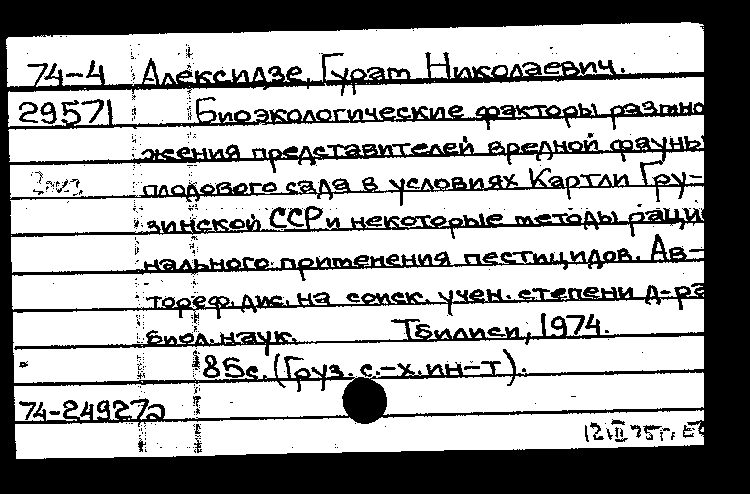 74-4 Алексидзе, Гурам Николаевич.
29571 Биоэкологические факторы размно
жения представителей вредной фауны
плодового сада в условиях Картли Гру-
зинской ССР и некоторые методы рацио
нального применения пестицидов. Ав-
тореф. дис. на соиск. учен. степени д-ра
биол. наук. Тбилиси, 1974.
85с. (Груз. с.-х. ин-т).
74-24927а
12 II 75г.